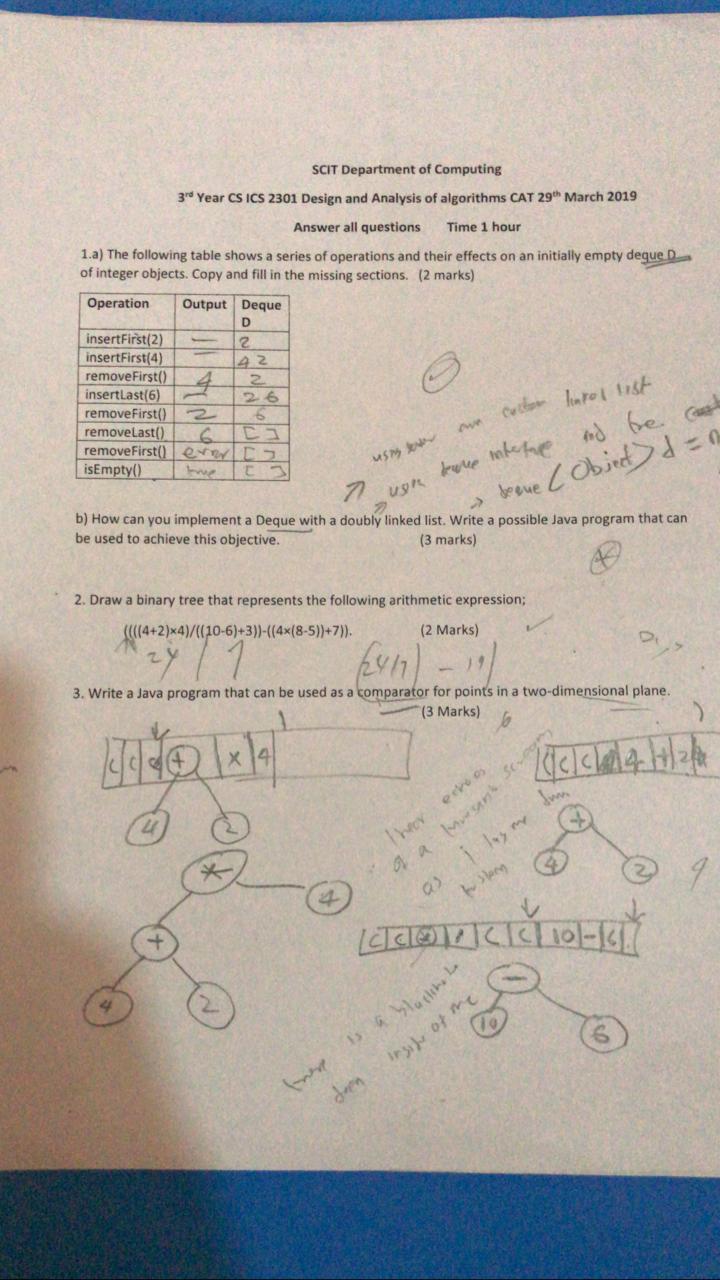 SCIT Department of Computing
3rd Year CS ICS 2301 Design and Analysis of algorithms CAT 29th March 2019
Answer all questions Time 1 hour
1.a) The following table shows a series of operations and their effects on an initially empty deque D
of integer objects. Copy and fill in the missing sections. (2 marks)
Operation Output Deque
D
insertFirst(2) — 2
insertFirst(4) — 4 2
removeFirst() 4 2
insertLast(6) — 2 6
removeFirst() 2 6
removeLast() 6 [ ]
removeFirst() error [ ]
isEmpty() true [ ]
linked list
using deque interface
deque (Object) d =
b) How can you implement a Deque with a doubly linked list. Write a possible Java program that can
be used to achieve this objective. (3 marks)
*
2. Draw a binary tree that represents the following arithmetic expression;
((((4+2)×4)/((10-6)+3))-((4×(8-5))+7)). (2 Marks)
24 / 7 (24/7) - 19
3. Write a Java program that can be used as a comparator for points in a two-dimensional plane.
(3 Marks) 6
( ( + × 4
( ( ( 4 + 2
4 2
+
4 2 9
*
4
( ( ( ( 10 - 6
+
4 2
-
10 6
I hear echos
of a thousand
as I lay me down
there is a
inside of me